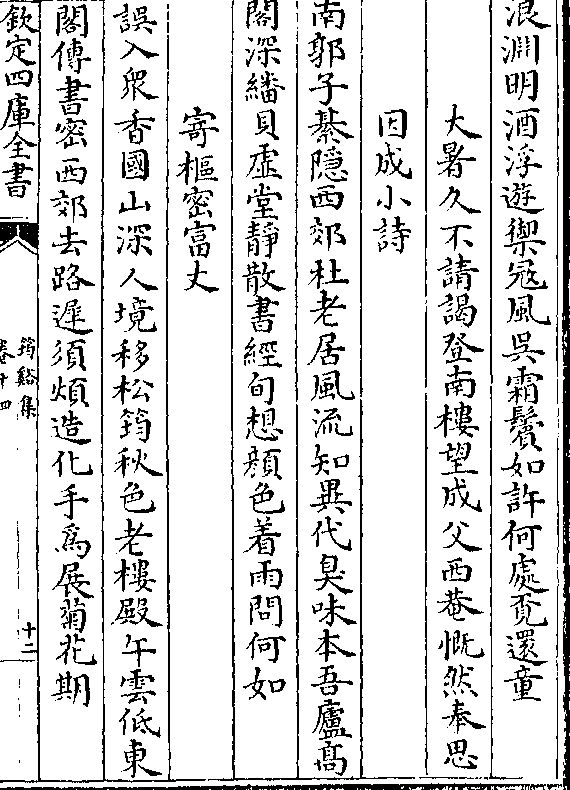 浪淵明酒浮遊禦冦風呉霜鬢如許何處覔還童
大暑久不請謁登南樓望成父西菴慨然奉思
因成小詩
南郭子綦隠西郊杜老居風流知異代臭味本吾廬髙
閣深繙貝虚堂靜散書經旬想顔色着雨問何如
寄樞密富丈
誤入衆香國山深人境移松筠秋色老樓殿午雲低東
閣傳書密西郊去路遲須煩造化手爲展菊花期
欽定四庫全書
筠谿集
卷十四
十二